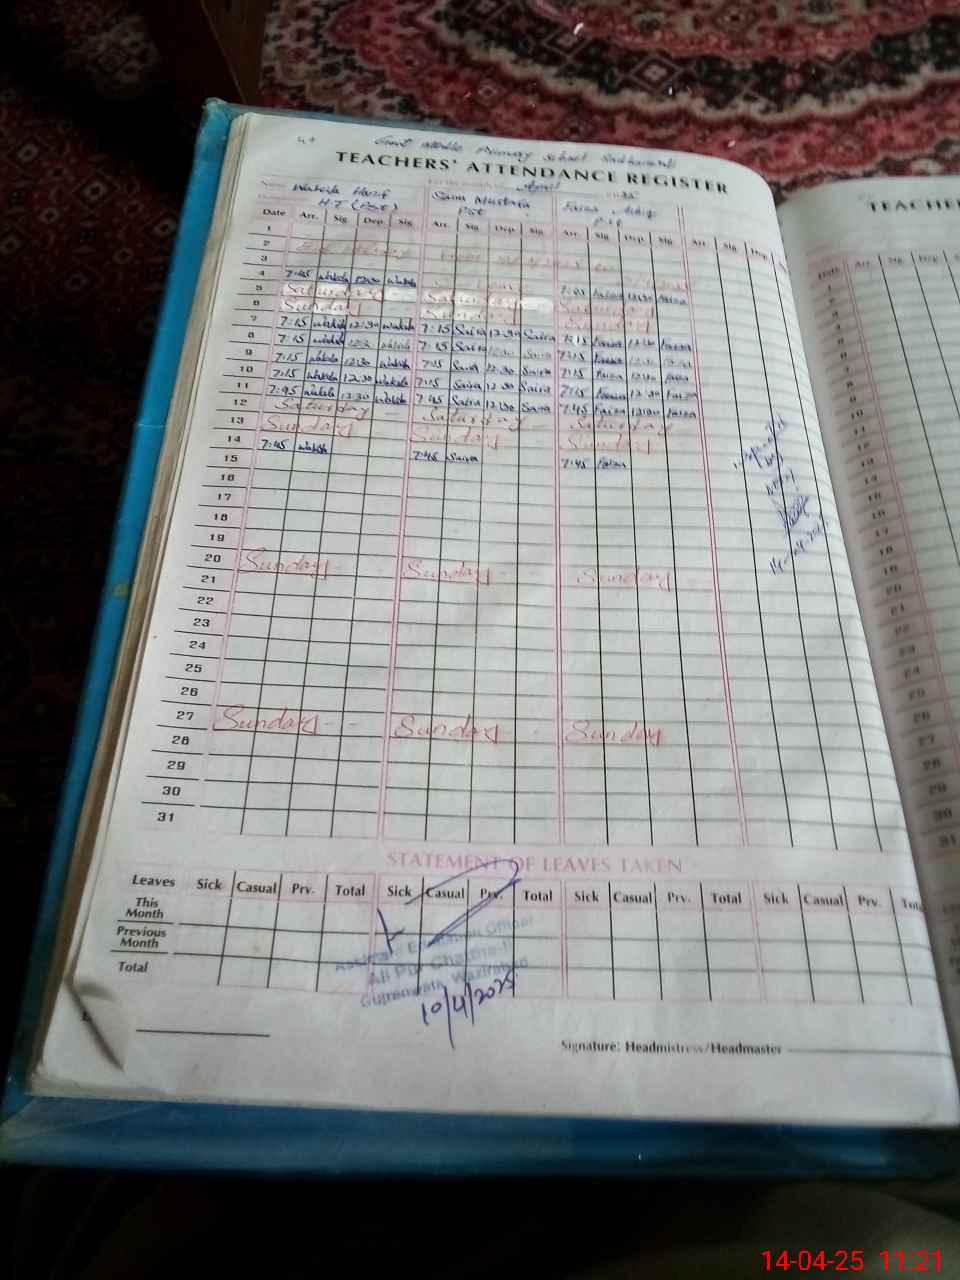 Primary School
TEACHERS' ATTENDANCE REGISTER
April
Wahida Hanif Saira Mustafa Faiza
H.T (Pst) Pst Pst
Date Arr. Sig. Dep. Sig. Arr. Sig. Dep. Sig. Arr. Sig. Dep. Sig. Arr. Sig. Dep.
1
2
3
4 7:45 Wahida 12:30 Wahida 7:45 Faiza 12:30 Faiza
5 Saturday Saturday Saturday
6 Sunday Sunday Sunday
7 7:15 Wahida 12:30 Wahida 7:15 Saira 12:30 Saira 7:15 Faiza 12:30 Faiza
8 7:15 Wahida 12:30 Wahida 7:15 Saira 12:30 Saira 7:15 Faiza 12:30 Faiza
9 7:15 Wahida 12:30 Wahida 7:15 Saira 12:30 Saira 7:15 Faiza 12:30 Faiza
10 7:15 Wahida 12:30 Wahida 7:15 Saira 12:30 Saira 7:15 Faiza 12:30 Faiza
11 7:45 Wahida 12:30 Wahida 7:45 Saira 12:30 Saira 7:45 Faiza 12:30 Faiza
12 Saturday Saturday Saturday
13 Sunday Sunday Sunday
14 7:45 Wahida 7:45 Saira 7:45 Faiza
15
16
17
18
19
20 Sunday Sunday Sunday
21
22
23
24
25
26
27 Sunday Sunday Sunday
28
29
30
31
STATEMENT OF LEAVES TAKEN
Leaves Sick Casual Prv. Total Sick Casual Prv. Total Sick Casual Prv. Total Sick Casual Prv.
This Month
Previous Month
Total
Assistant Education Officer
Ali Pur Chattha-I
Gujranwala, Wazirabad
10/4/2025
Signature: Headmistress/Headmaster
TEACHE
Date Arr. Sig. Dep.
14-04-25 11:21